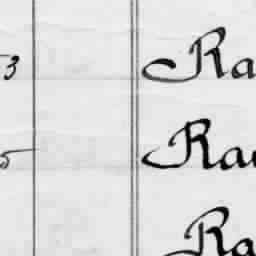 3 Ra
5 Ra
Ra